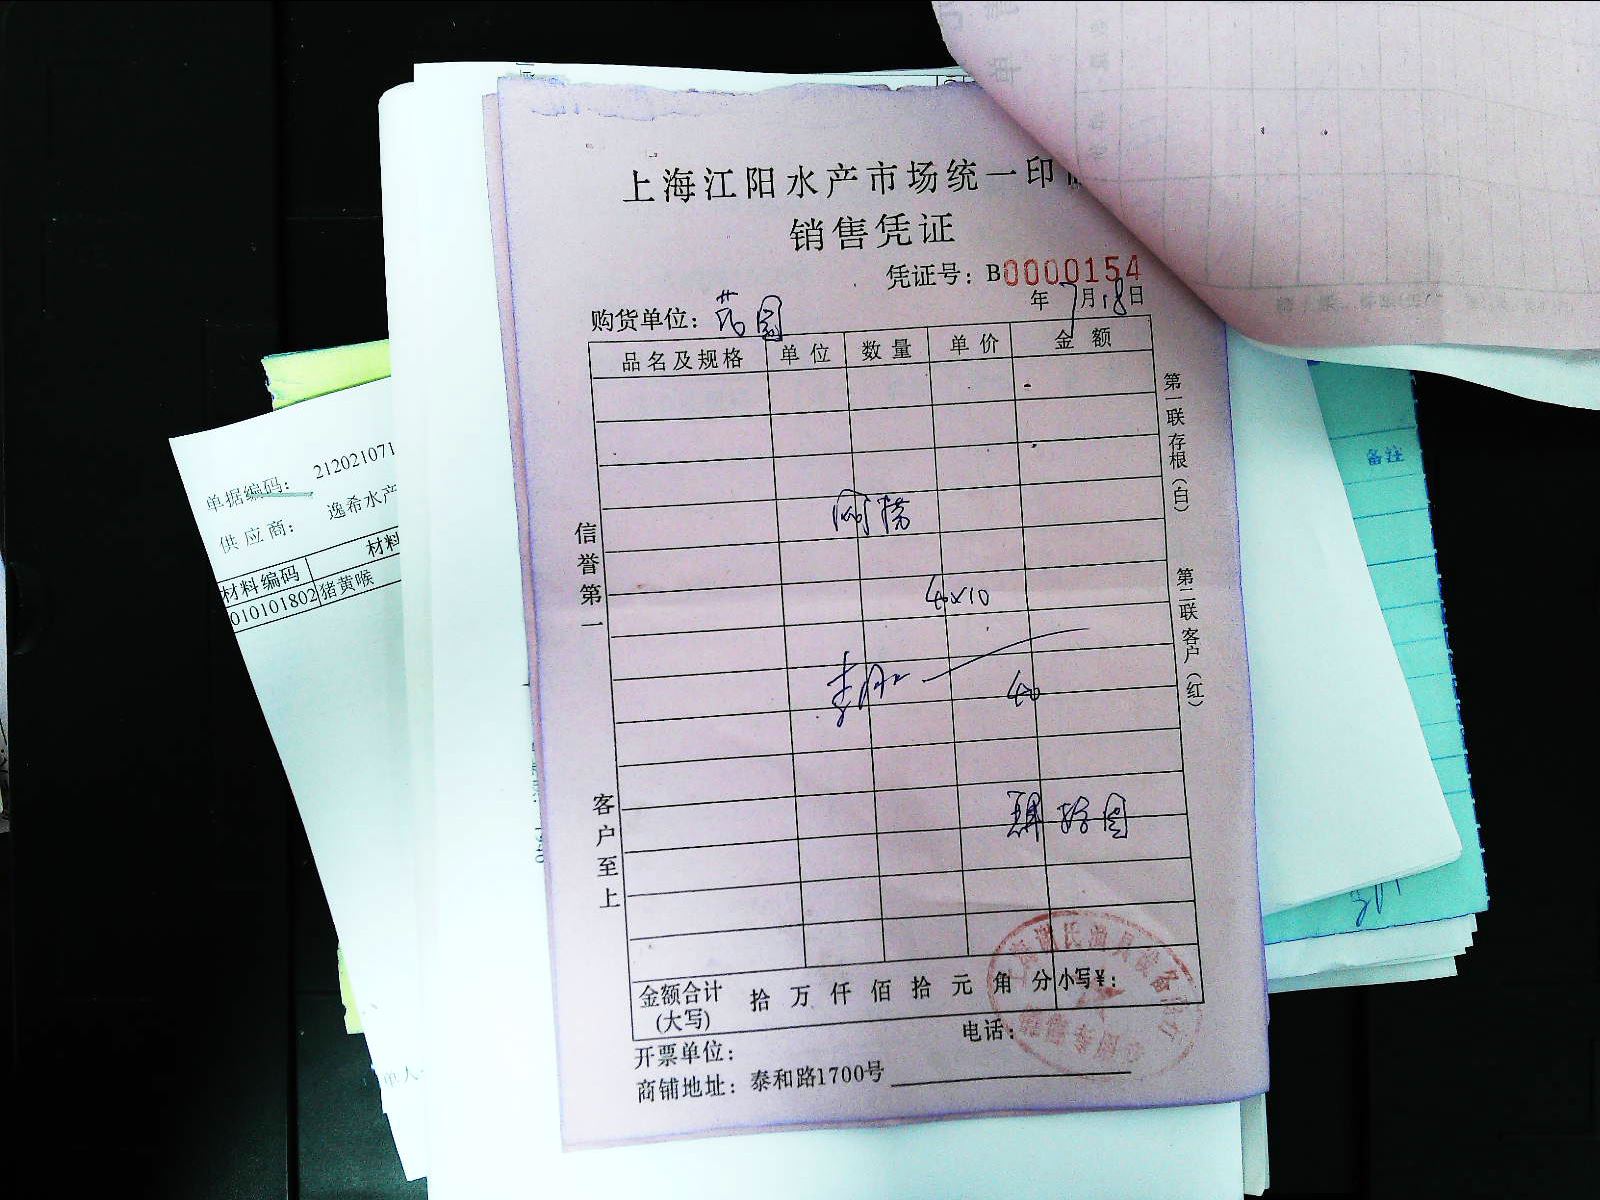 上海江阳水产市场统一印
销售凭证
凭证号：B0000154
年7月18日
购货单位：范园
品名及规格 单位 数量 单价 金额
网捞
4x10
40
肆拾圆
金额合计(大写) 拾 万 仟 佰 拾 元 角 分 小写¥：
电话：
开票单位：
商铺地址：泰和路1700号
信誉第一
客户至上
第一联 存根（白）
第二联 客户（红）
单据编码： 212021071
供应商： 逸希水产
材料编码 材料
010101802 猪黄喉
备注